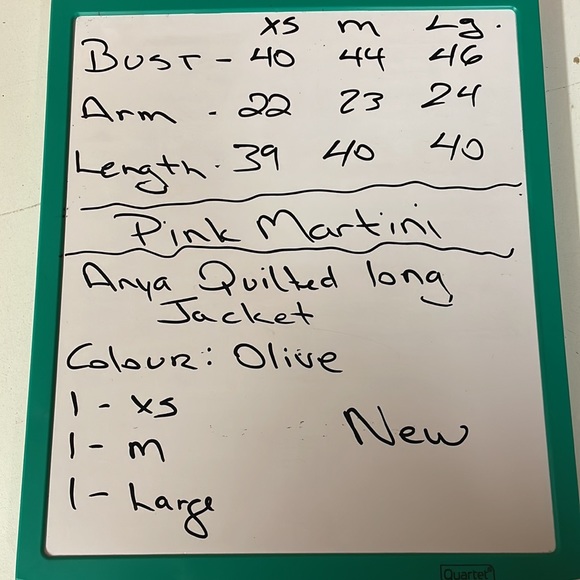 XS M Lg.
Bust - 40 44 46
Arm - 22 23 24
Length - 39 40 40
Pink Martini
Anya Quilted long
Jacket
Colour: Olive
1 - XS
1 - M
New
1 - Large
Quartet